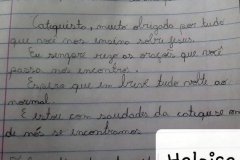 Catequista, muito obrigado por tudo
que você nos ensina sobre Jesus.
Eu sempre rezo as orações que você
passa nos encontros.
Espero que em breve tudo volte ao
normal.
E estou com saudades da catequese on
de nós se encontramos
Heloisa